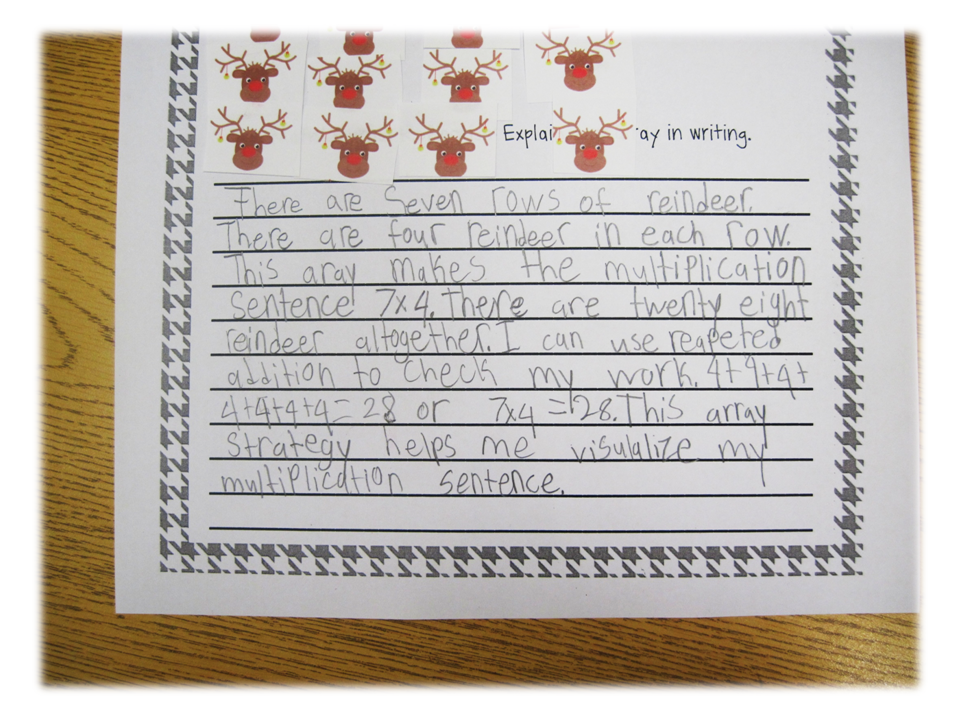 Explai ay in writing.
There are Seven rows of reindeer.
There are four reindeer in each row.
This aray makes the multiplication
sentence 7x4. There are twenty eight
reindeer altogether. I can use reapeted
addition to check my work. 4+4+4+
4+4+4+4=28 or 7x4=28. This array
strategy helps me visulalize my
multiplication sentence.